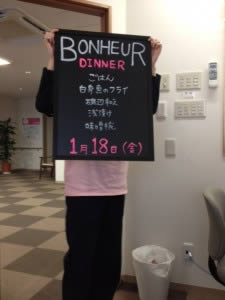 BONHEUR
DINNER
ごはん
白身魚のフライ
磯辺和え
浅漬け
味噌椀
1月18日(金)